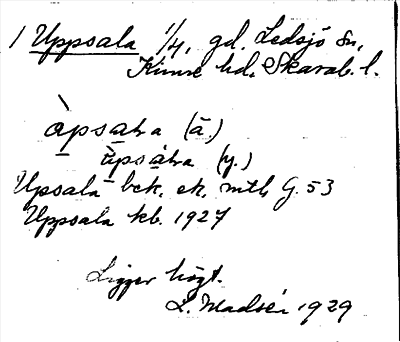 1 Uppsala 1/4, gd. Ledsjö sn,
Kinne hd, Skarab. l.
àpsaɫra (ä.)
ùpsaɫra (y.)
Upsala bek. ek. mtl G. 53
Uppsala kb. 1927
Ligger högt.
L. Madsén 1929